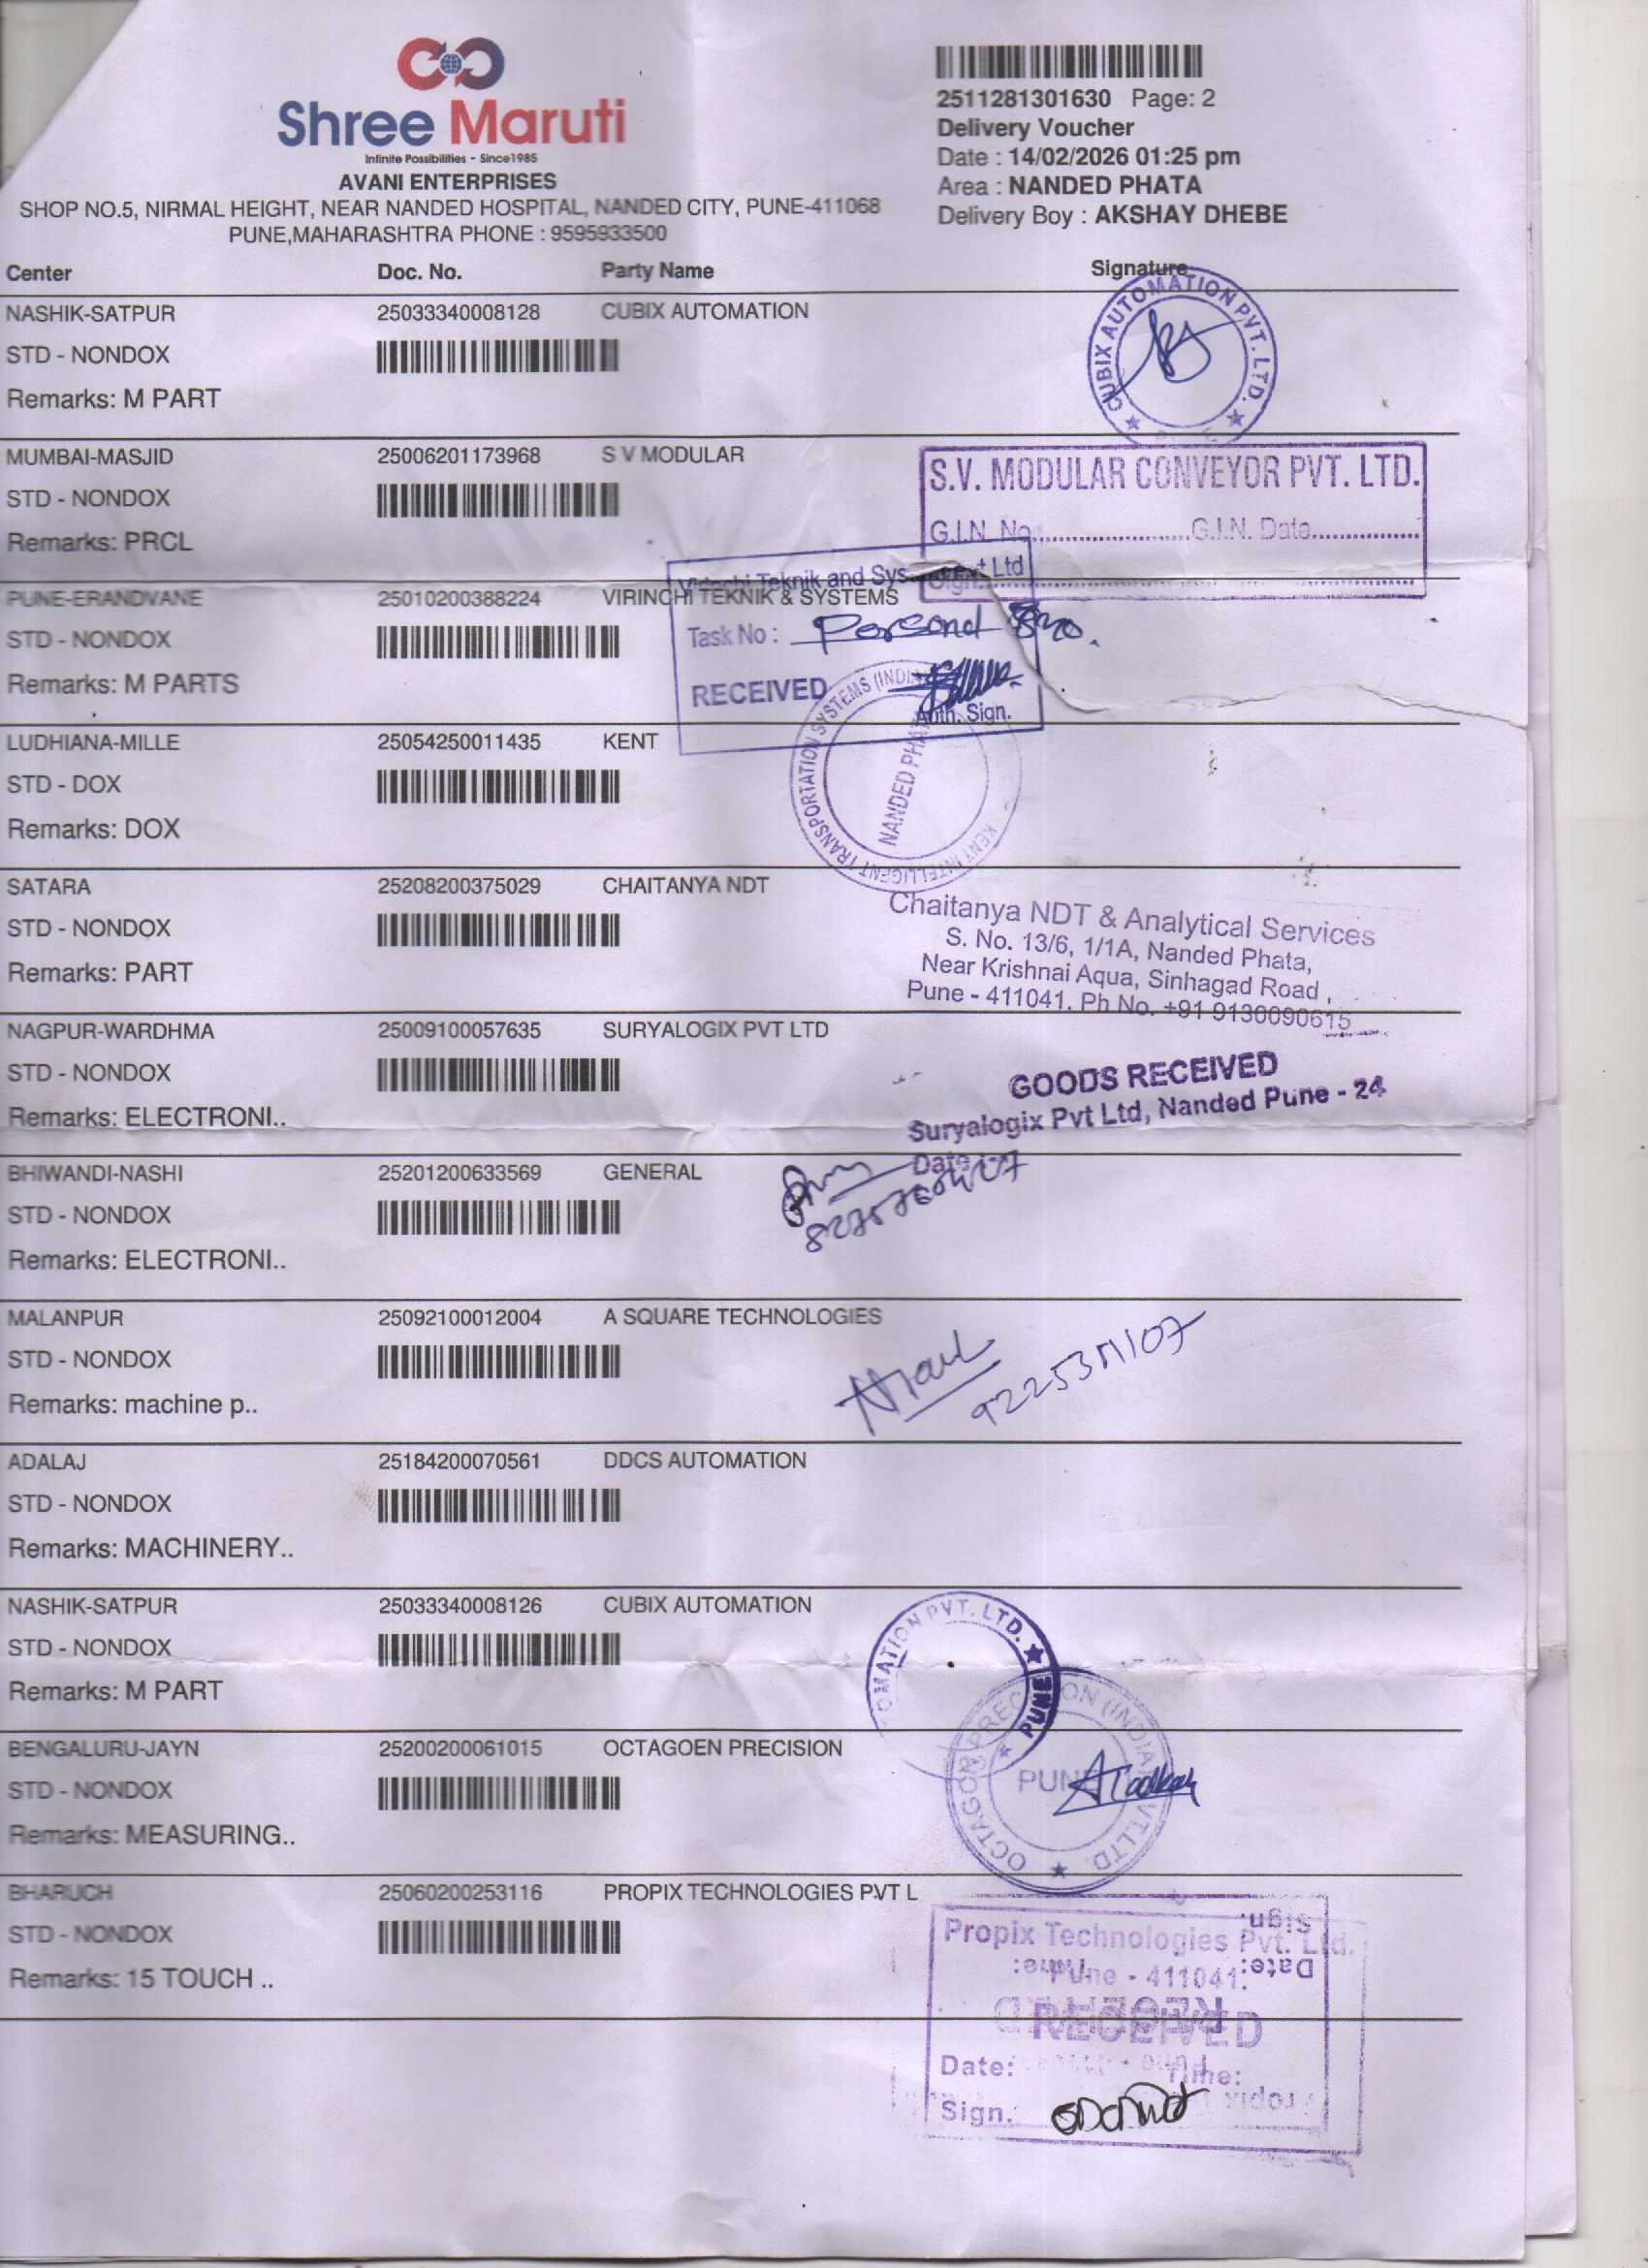 Shree Maruti
Infinite Possibilities - Since1985
AVANI ENTERPRISES
SHOP NO.5, NIRMAL HEIGHT, NEAR NANDED HOSPITAL, NANDED CITY, PUNE-411068
PUNE,MAHARASHTRA PHONE : 9595933500
2511281301630 Page: 2
Delivery Voucher
Date : 14/02/2026 01:25 pm
Area : NANDED PHATA
Delivery Boy : AKSHAY DHEBE
Center Doc. No. Party Name Signature
NASHIK-SATPUR 25033340008128 CUBIX AUTOMATION
STD - NONDOX
Remarks: M PART
CUBIX AUTOMATION PVT. LTD.
MUMBAI-MASJID 25006201173968 S V MODULAR
STD - NONDOX
Remarks: PRCL
S.V. MODULAR CONVEYOR PVT. LTD.
G.I.N. No..........................G.I.N. Date..................
Sign.
PUNE-ERANDVANE 25010200388224 VIRINCHI TEKNIK & SYSTEMS
STD - NONDOX
Remarks: M PARTS
Virinchi Teknik and Ltd
Task No :
RECEIVED
Auth. Sign.
LUDHIANA-MILLE 25054250011435 KENT
STD - DOX
Remarks: DOX
KENT INTELLIGENT TRANSPORTATION SYSTEMS (INDIA
NANDED PHATA
SATARA 25208200375029 CHAITANYA NDT
STD - NONDOX
Remarks: PART
Chaitanya NDT & Analytical Services
S. No. 13/6, 1/1A, Nanded Phata,
Near Krishnai Aqua, Sinhagad Road ,
Pune - 411041. Ph No. +91 9130090615
NAGPUR-WARDHMA 25009100057635 SURYALOGIX PVT LTD
STD - NONDOX
Remarks: ELECTRONI..
GOODS RECEIVED
Suryalogix Pvt Ltd, Nanded Pune - 24
Date :-
BHIWANDI-NASHI 25201200633569 GENERAL
STD - NONDOX
Remarks: ELECTRONI..
MALANPUR 25092100012004 A SQUARE TECHNOLOGIES
STD - NONDOX
Remarks: machine p..
ADALAJ 25184200070561 DDCS AUTOMATION
STD - NONDOX
Remarks: MACHINERY..
NASHIK-SATPUR 25033340008126 CUBIX AUTOMATION
STD - NONDOX
Remarks: M PART
OMATION PVT. LTD.
PUNE
BENGALURU-JAYN 25200200061015 OCTAGOEN PRECISION
STD - NONDOX
Remarks: MEASURING..
OCTAGON PRECISION (INDIA) PVT.LTD.
PUNE
BHARUCH 25060200253116 PROPIX TECHNOLOGIES PVT L
STD - NONDOX
Remarks: 15 TOUCH ..
Propix Technologies Pvt. Ltd.
Pune - 411041.
RECEIVED
Date: Time:
Sign.